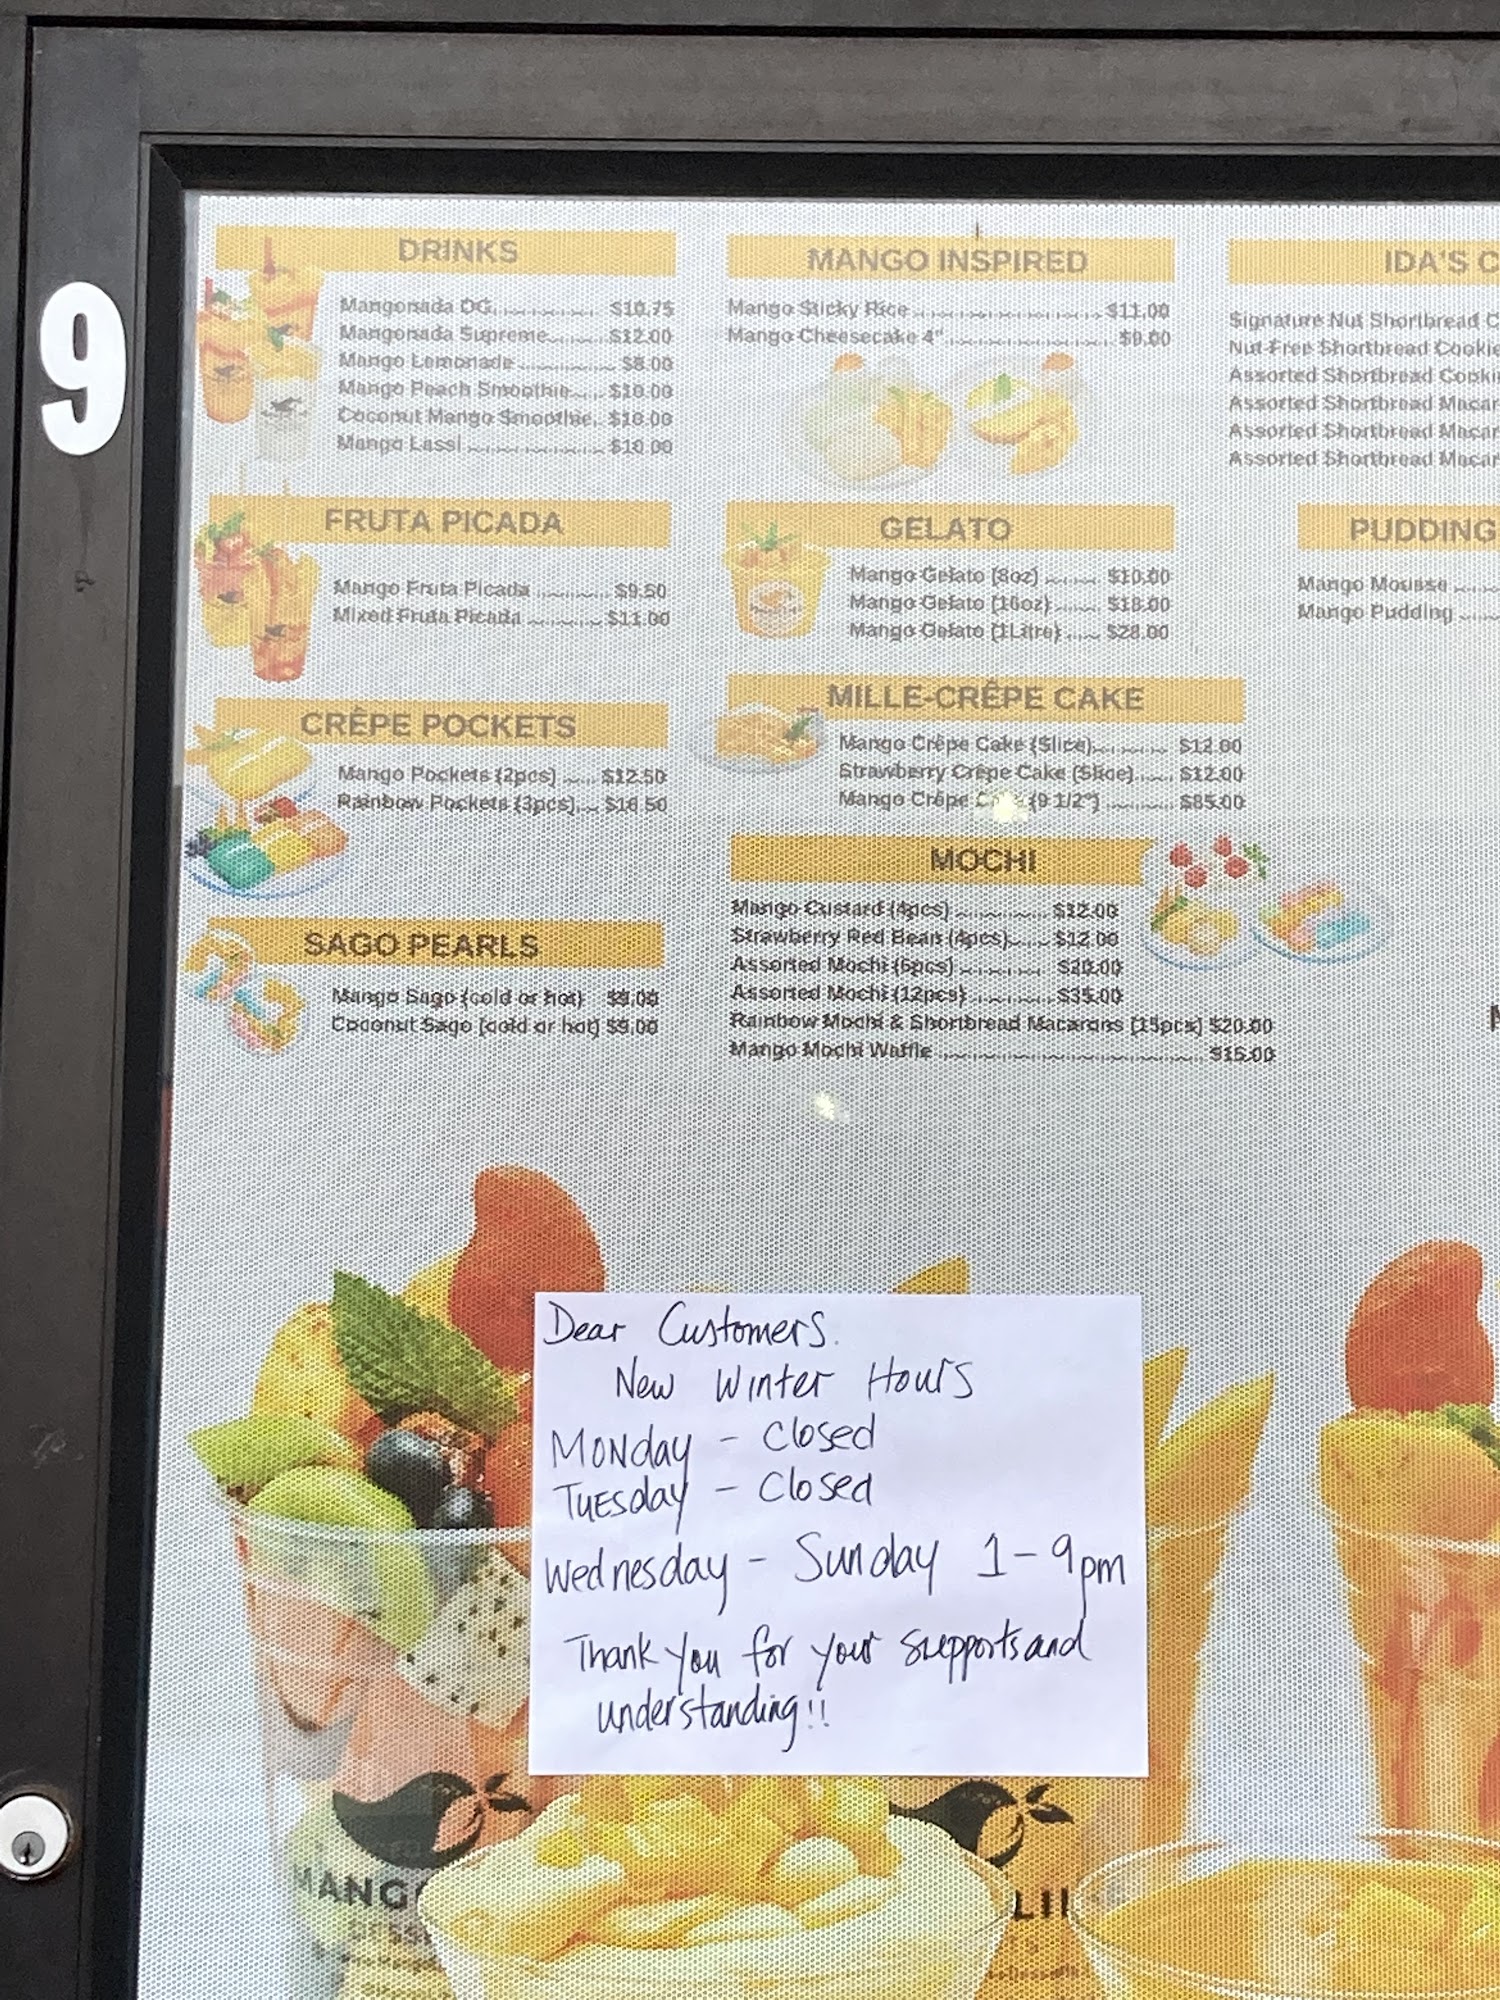 9
DRINKS
Mangonada OG............ $10.75
Mangonada Supreme........ $12.00
Mango Lemonade ............ $8.00
Mango Peach Smoothie..... $10.00
Coconut Mango Smoothie.. $10.00
Mango Lassi ................ $10.00
FRUTA PICADA
Mango Fruta Picada ............ $9.50
Mixed Fruta Picada ............ $11.00
CRÊPE POCKETS
Mango Pockets (2pcs) ..... $12.50
Rainbow Pockets (3pcs).... $16.50
SAGO PEARLS
Mango Sago (cold or hot) $9.00
Coconut Sago (cold or hot) $9.00
MANGO INSPIRED
Mango Sticky Rice ........................ $11.00
Mango Cheesecake 4" ........................ $9.00
GELATO
Mango Gelato (8oz) ....... $10.00
Mango Gelato (16oz) ...... $18.00
Mango Gelato (1Litre) ..... $28.00
MILLE-CRÊPE CAKE
Mango Crêpe Cake (Slice)........... $12.00
Strawberry Crêpe Cake (Slice)...... $12.00
Mango Crêpe (9 1/2") ........... $85.00
MOCHI
Mango Custard (4pcs) .............. $12.00
Strawberry Red Bean (4pcs)...... $12.00
Assorted Mochi (6pcs) ............ $20.00
Assorted Mochi (12pcs) ............ $35.00
Rainbow Mochi & Shortbread Macarons (15pcs) $20.00
Mango Mochi Waffle ........................................ $15.00
IDA'S C
Signature Nut Shortbread C
Nut-Free Shortbread Cookie
Assorted Shortbread Cooki
Assorted Shortbread Macar
Assorted Shortbread Macar
Assorted Shortbread Macar
PUDDING
Mango Mousse ......
Mango Pudding .....
Dear Customers.
New Winter Hours
Monday - Closed
Tuesday - Closed
Wednesday - Sunday 1-9pm
Thank you for your supports and
understanding!!
MANG
LII